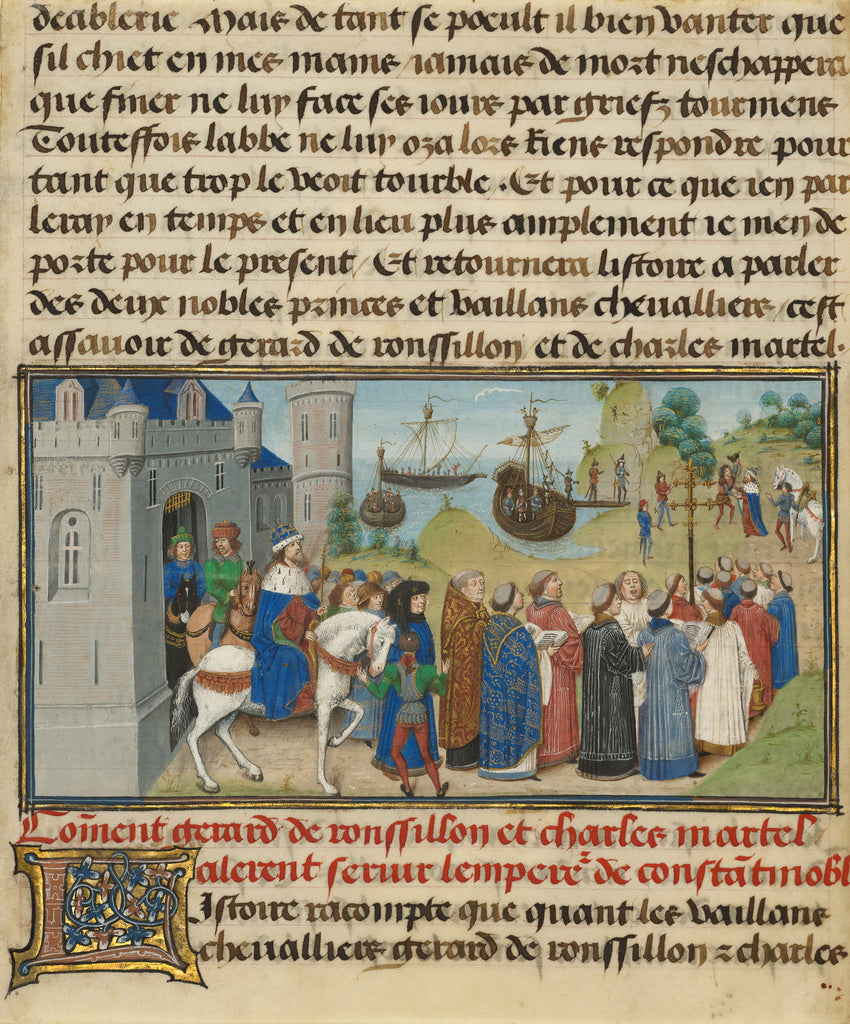 deablerie Mais de tant se poeult il bien vanter que
sil chiet en mes mains iamais de mort neschappera
que finer ne luy face ses iours par griefz tourmens
Touteffois labbe ne luy oza lors riens respondre pour
tant que trop le veoit tourble . Et pour ce que ien par
leray en temps et en lieu plus amplement ie men de
porte pour le present / Et retournera listoire a parler
des deux nobles princes et vaillans chevalliers / cest
assavoir de gerard de ronssillon et de charles martel .
Com̃ent gerard de ronssillon et charles martel
alerent servir lempereʳ de constãtinobl
L Istoire racompte que quant les vaillans
chevalliers gerard de ronssillon ⁊ charles